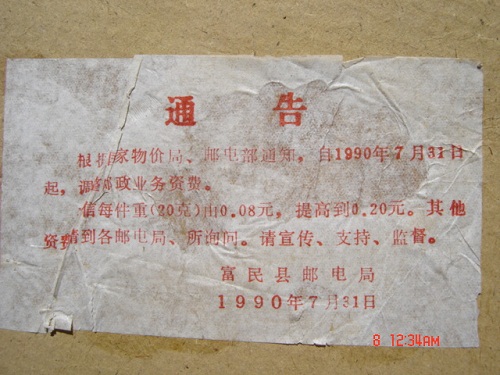 通告
根据家物价局、邮电部通知，自1990年7月31日
起，调邮政业务资费。
信每件重(20克)由0.08元，提高到0.20元。其他
资费请到各邮电局、所询问。请宣传、支持、监督。
富民县邮电局
1990年7月31日
8 12:34AM